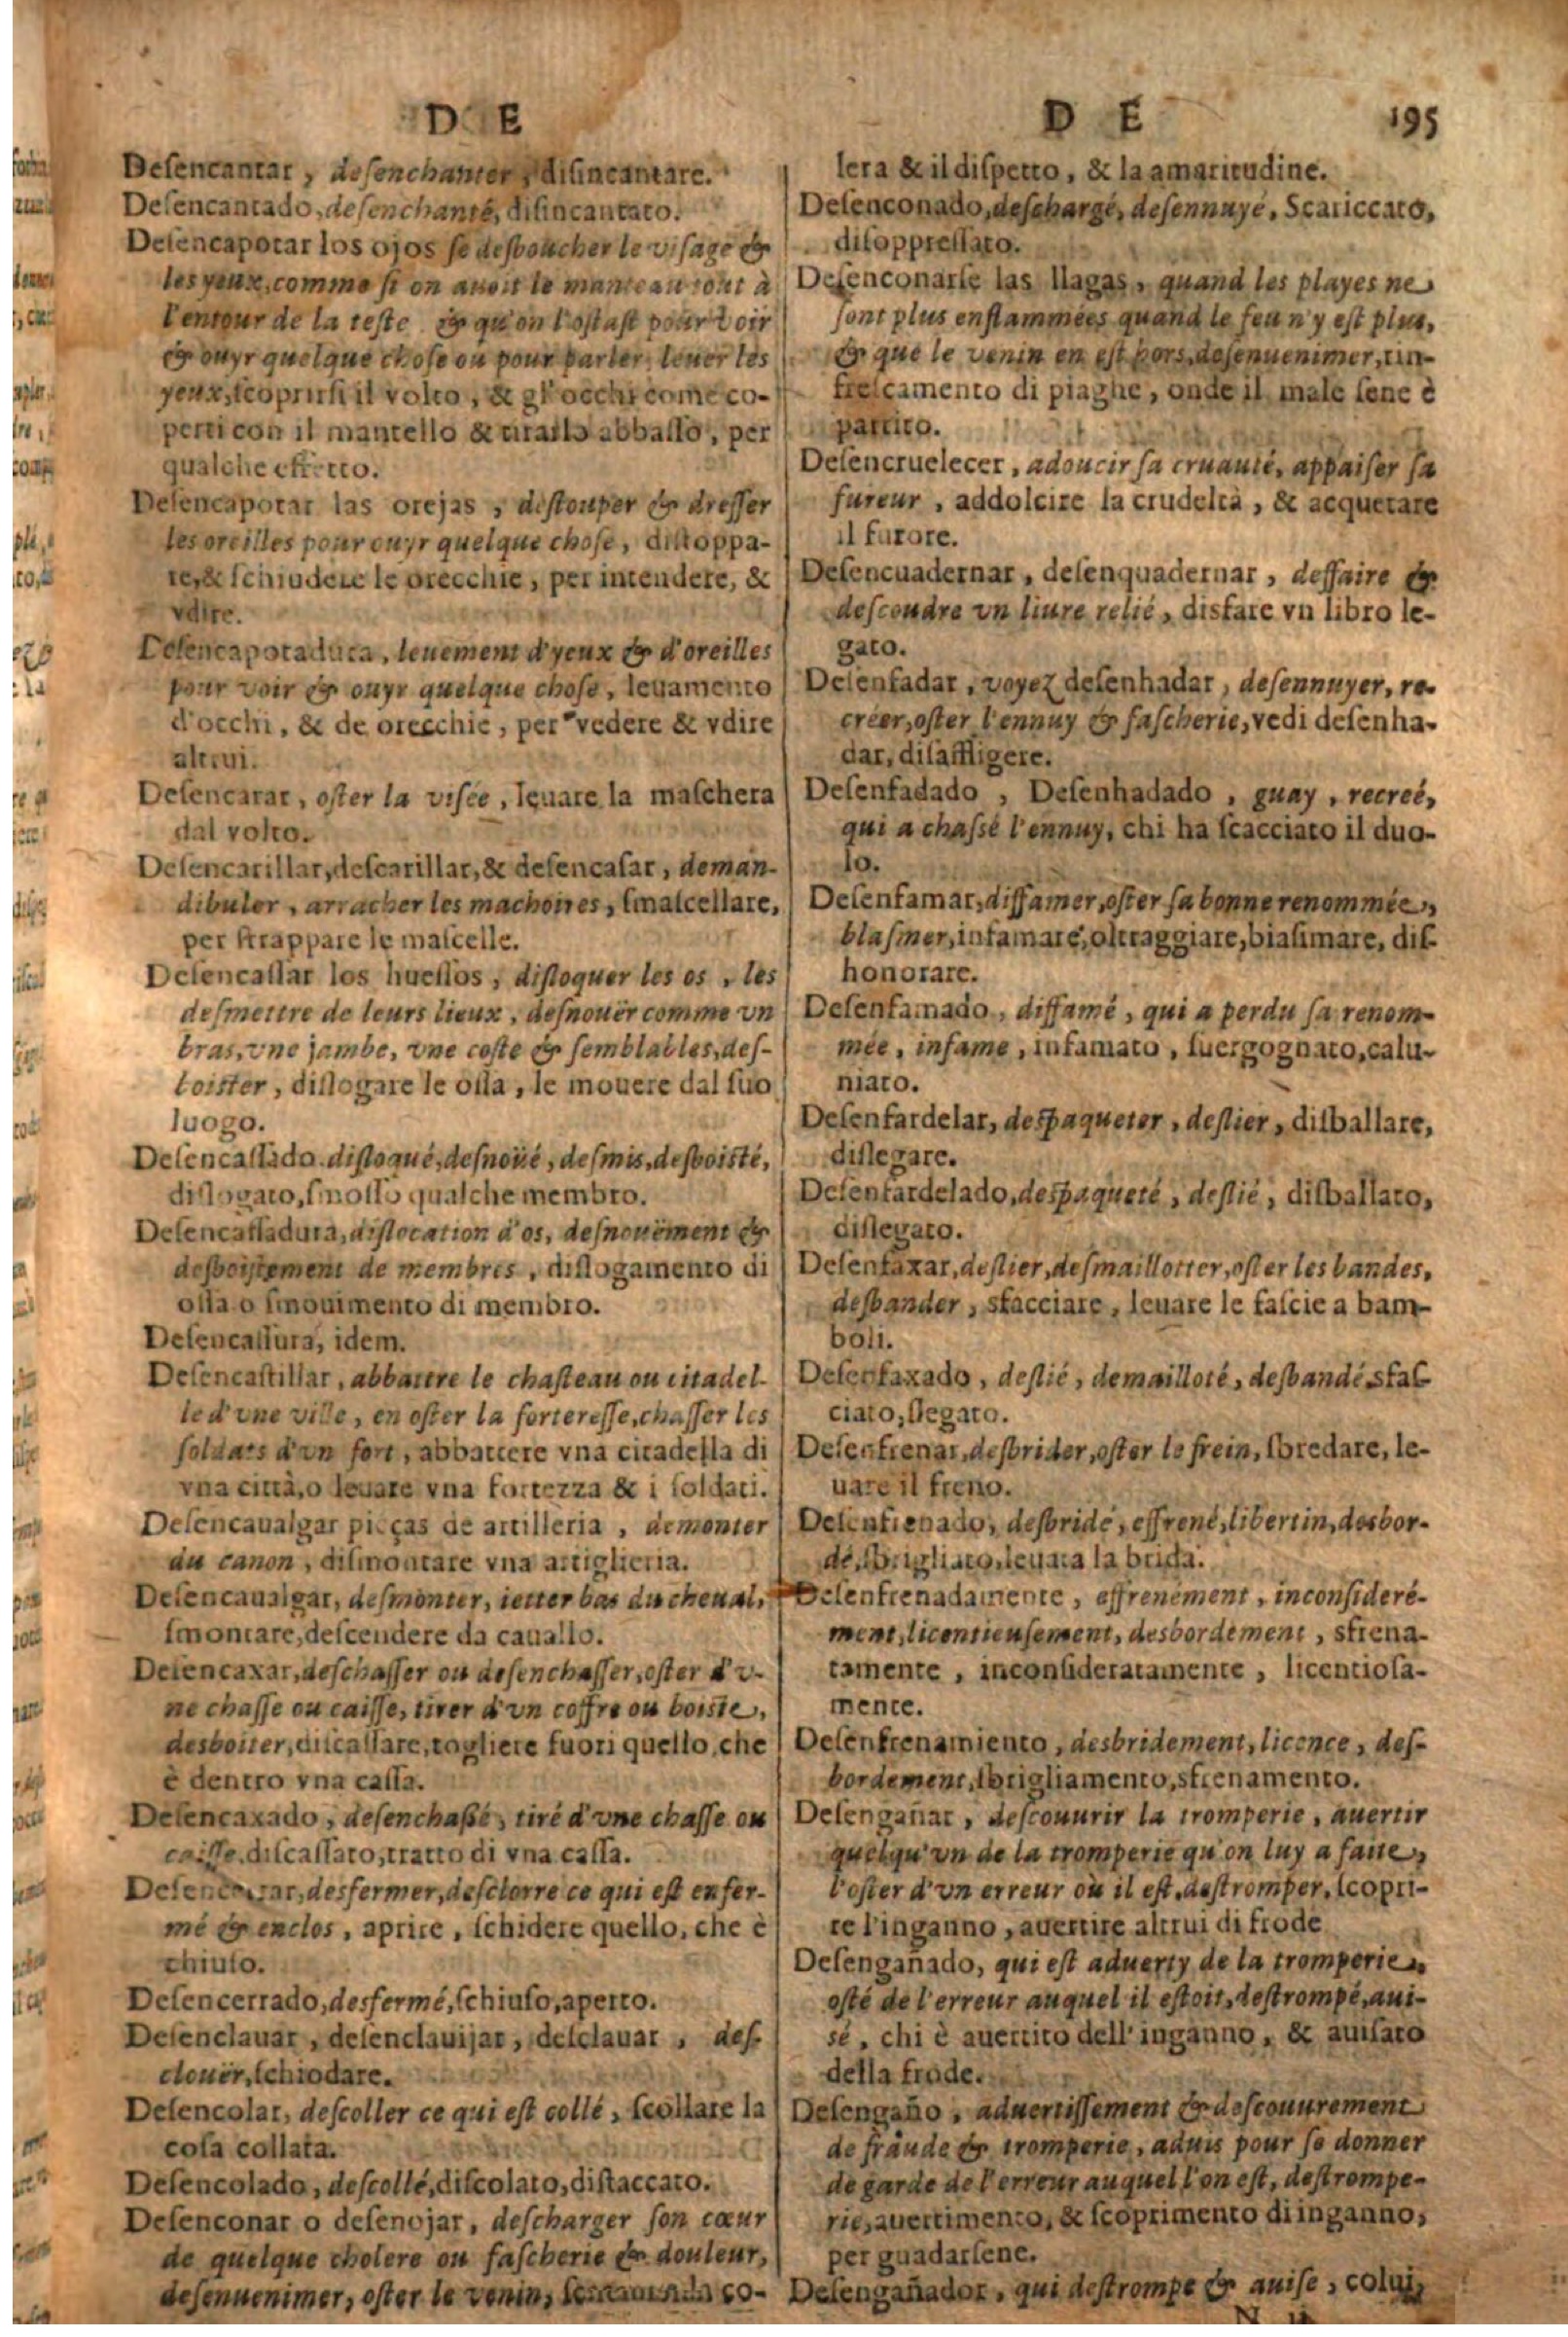 D E
Deſencantar, deſenchanter, diſincantare.
Deſencantado, deſenchanté, diſincantato.
Deſencapotar los ojos ſe desboucher le viſage &
les yeux, comme ſi on auoit le manteau tout à
l'entour de la teſte & qu'on l'oſtaſt pour voir
& ouyr quelque choſe ou pour parler, leuer les
yeux, ſcoprirſi il volto, & gl'occhi come co-
perti con il mantello & tirarlo abbaſſo, per
qualche effetto.
Deſencapotar las orejas, deſtouper & dreſſer
les oreilles pour ouyr quelque choſe, diſtoppa-
re, & ſchiudere le orecchie, per intendere, &
vdire.
Deſencapotadura, leuement d'yeux & d'oreilles
pour voir & ouyr quelque choſe, leuamento
d'occhi, & de orecchie, per vedere & vdire
altrui.
Deſencarar, oſter la viſée, leuare la maſchera
dal volto.
Deſencarillar, deſcarillar, & deſencaſar, deman-
dibuler, arracher les machoires, ſmaſcellare,
per ſtrappare le maſcelle.
Deſencaſſar los hueſſos, diſloquer les os, les
deſmettre de leurs lieux, deſnouër comme vn
bras, vne jambe, vne coſte & ſemblables, deſ-
boiſter, diſlogare le oſſa, le mouere dal ſuo
luogo.
Deſencaſſado. diſloqué, deſnoüé, deſmis, desboiſté,
diſlogato, ſmoſſo qualche membro.
Deſencaſſadura, diſlocation d'os, deſnouëment &
desboiſtement de membres, diſlogamento di
oſſa o ſmouimento di membro.
Deſencaſſura, idem.
Deſencaſtillar, abbattre le chaſteau ou citadel-
le d'vne ville, en oſter la fortereſſe, chaſſer les
ſoldats d'vn fort, abbattere vna citadella di
vna città, o leuare vna fortezza & i ſoldati.
Deſencaualgar pieças de artilleria, demonter
du canon, diſmontare vna artiglieria.
Deſencaualgar, deſmonter, ietter bas du cheual,
ſmontare, deſcendere da cauallo.
Deſencaxar, deſchaſſer ou deſenchaſſer, oſter d'v-
ne chaſſe ou caiſſe, tirer d'vn coffre ou boiſte,
desboiter, diſcaſſare, togliere fuori quello, che
è dentro vna caſſa.
Deſencaxado, deſenchaßé, tiré d'vne chaſſe ou
caiſſe, diſcaſſato, tratto di vna caſſa.
Deſencerrar, desfermer, deſclorre ce qui eſt enfer-
mé & enclos, aprire, ſchidere quello, che è
chiuſo.
Deſencerrado, desfermé, ſchiuſo, aperto.
Deſenclauar, deſenclauijar, deſclauar, deſ-
clouër, ſchiodare.
Deſencolar, deſcoller ce qui eſt collé, ſcollare la
coſa collata.
Deſencolado, deſcollé, diſcolato, diſtaccato.
Deſenconar o deſenojar, deſcharger ſon cœur
de quelque cholere ou faſcherie & douleur,
deſenuenimer, oſter le venin, co-
D E 195
lera & il diſpetto, & la amaritudine.
Deſenconado, deſchargé, deſennuyé, Scariccato,
diſoppreſſato.
Deſenconarſe las llagas, quand les playes ne
ſont plus enflammées quand le feu n'y eſt plus,
& que le venin en eſt hors, deſenuenimer, rin-
freſcamento di piaghe, onde il male ſene è
partito.
Deſencruelecer, adoucir ſa cruauté, appaiſer ſa
fureur, addolcire la crudeltà, & acquetare
il furore.
Deſencuadernar, deſenquadernar, deffaire &
deſcoudre vn liure relié, disfare vn libro le-
gato.
Deſenfadar, voyez deſenhadar, deſennuyer, re-
créer, oſter l'ennuy & faſcherie, vedi deſenha-
dar, diſaffligere.
Deſenfadado, Deſenhadado, guay, recreé,
qui a chaſſé l'ennuy, chi ha ſcacciato il duo-
lo.
Deſenfamar, diffamer, oſter ſa bonne renommée,
blaſmer, infamare, oltraggiare, biaſimare, diſ-
honorare.
Deſenfamado, diffamé, qui a perdu ſa renom-
mée, infame, infamato, ſuergognato, calu-
niato.
Deſenfardelar, despaqueter, deſlier, disballare,
diſlegare.
Deſenfardelado, despaqueté, deſlié, disballato,
diſlegato.
Deſenfaxar, deſlier, deſmaillotter, oſter les bandes,
desbander, sfacciare, leuare le faſcie a bam-
boli.
Deſenfaxado, deſlié, demailloté, desbandé, sfaſ-
ciato, ſlegato.
Deſenfrenar, desbrider, oſter le frein, ſbredare, le-
uare il freno.
Deſenfrenado, desbridé, effrené, libertin, desbor-
dé, ſbrigliato, leuata la brida.
Deſenfrenadamente, effrenément, inconſideré-
ment, licentieuſement, desbordément, sfrena-
tamente, inconſideratamente, licentioſa-
mente.
Deſenfrenamiento, desbridement, licence, deſ-
bordement, ſbrigliamento, sfrenamento.
Deſengañar, deſcouurir la tromperie, auertir
quelqu'vn de la tromperie qu'on luy a faite,
l'oſter d'vn erreur où il eſt, deſtromper, ſcopri-
re l'inganno, auertire altrui di frode
Deſengañado, qui eſt aduerty de la tromperie,
oſté de l'erreur auquel il eſtoit, deſtrompé, aui-
sé, chi è auertito dell'inganno, & auiſato
della frode.
Deſengaño, aduertiſſement & deſcouurement
de fraude & tromperie, aduis pour ſe donner
de garde de l'erreur auquel l'on eſt, deſtrompe-
rie, auertimento, & ſcoprimento di inganno,
per guadarſene.
Deſengañador, qui deſtrompe & auiſe, colui,